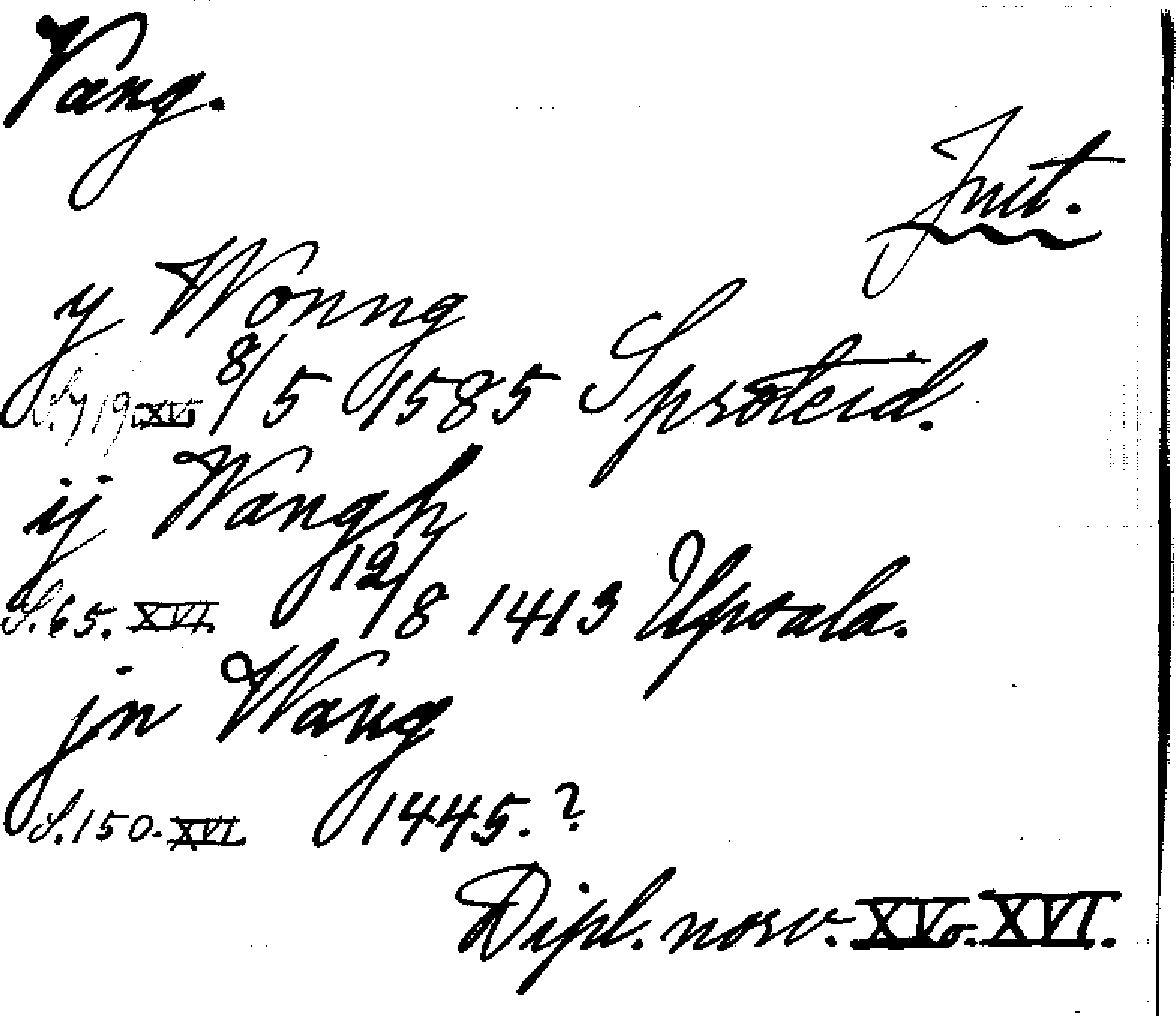 Vang.
Just.
y Wonng
S. 719. XV. 8/5 1585 Sproteid.
ij Wangh
S. 65. XVI. 12/8 1413 Upsala.
jn Wang
S. 150. XVI. 1445. ?
Dipl. norv. XV o. XVI.